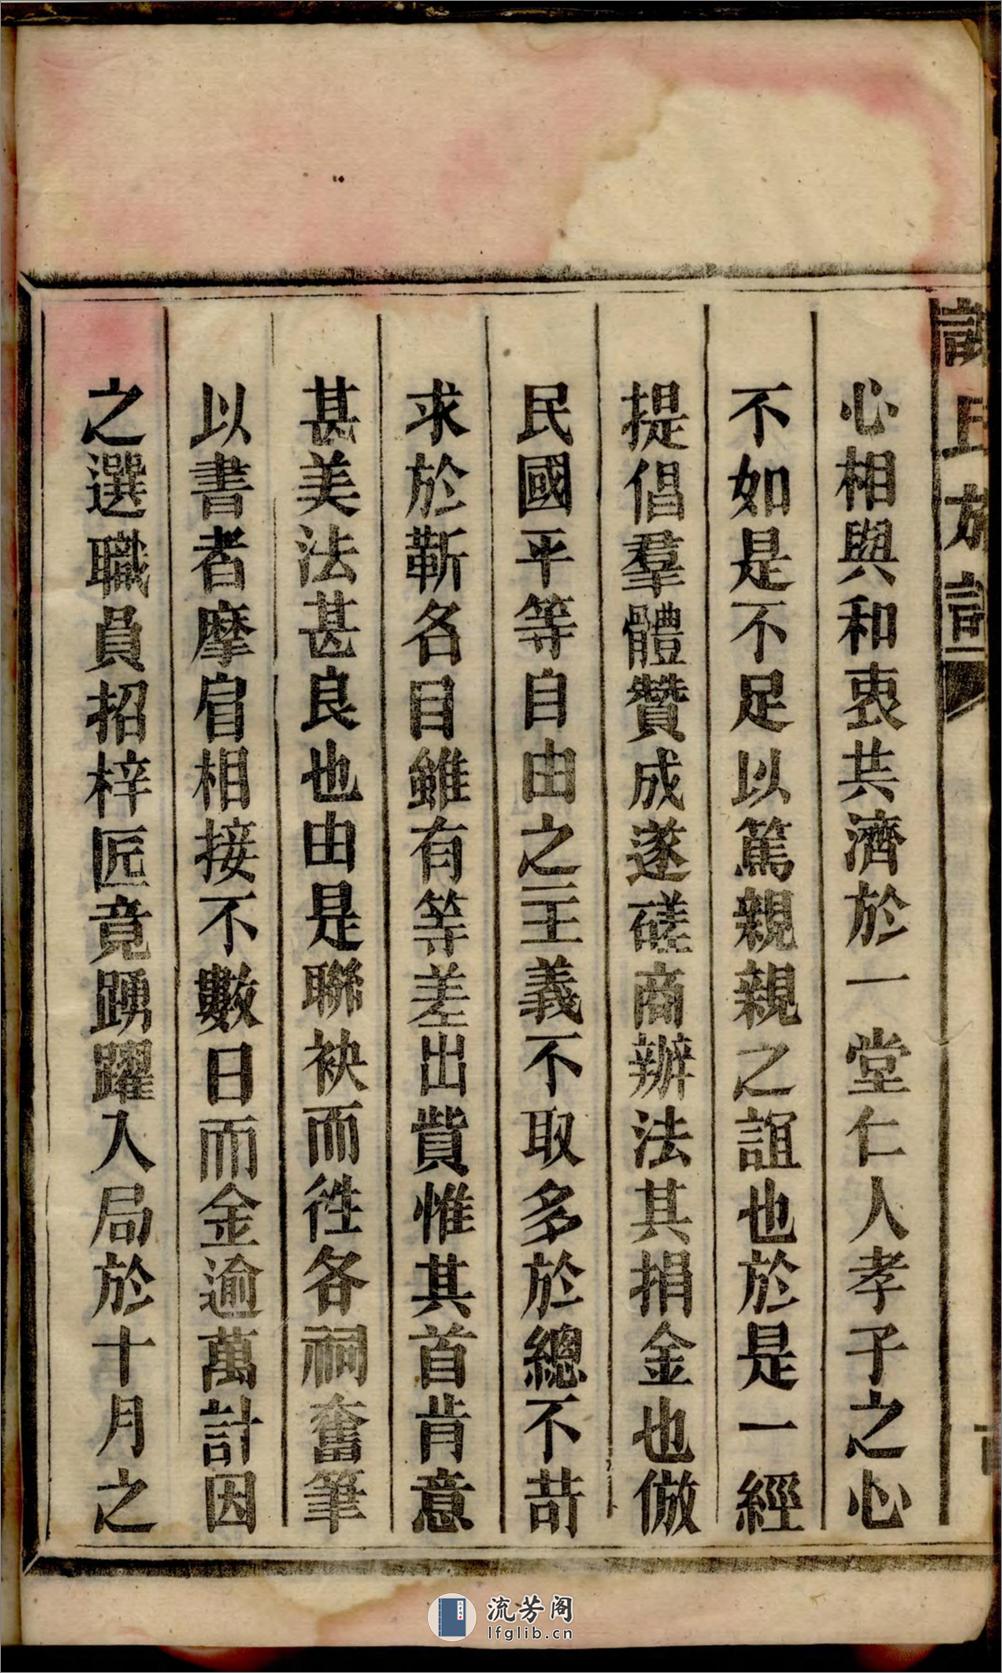 氏族譜
心相與和衷共濟於一堂仁人孝子之心
不如是不足以篤親親之誼也於是一經
提倡羣體贊成遂磋商辦法其捐金也倣
民國平等自由之主義不取多於總不苛
求於斬名目雖有等差出貲惟其首肯意
甚美法甚良也由是聯袂而徃各祠奮筆
以書者摩肩相接不數日而金逾萬計因
之選職員招梓匠竟踴躍入局於十月之
流芳阁
lfglib.cn